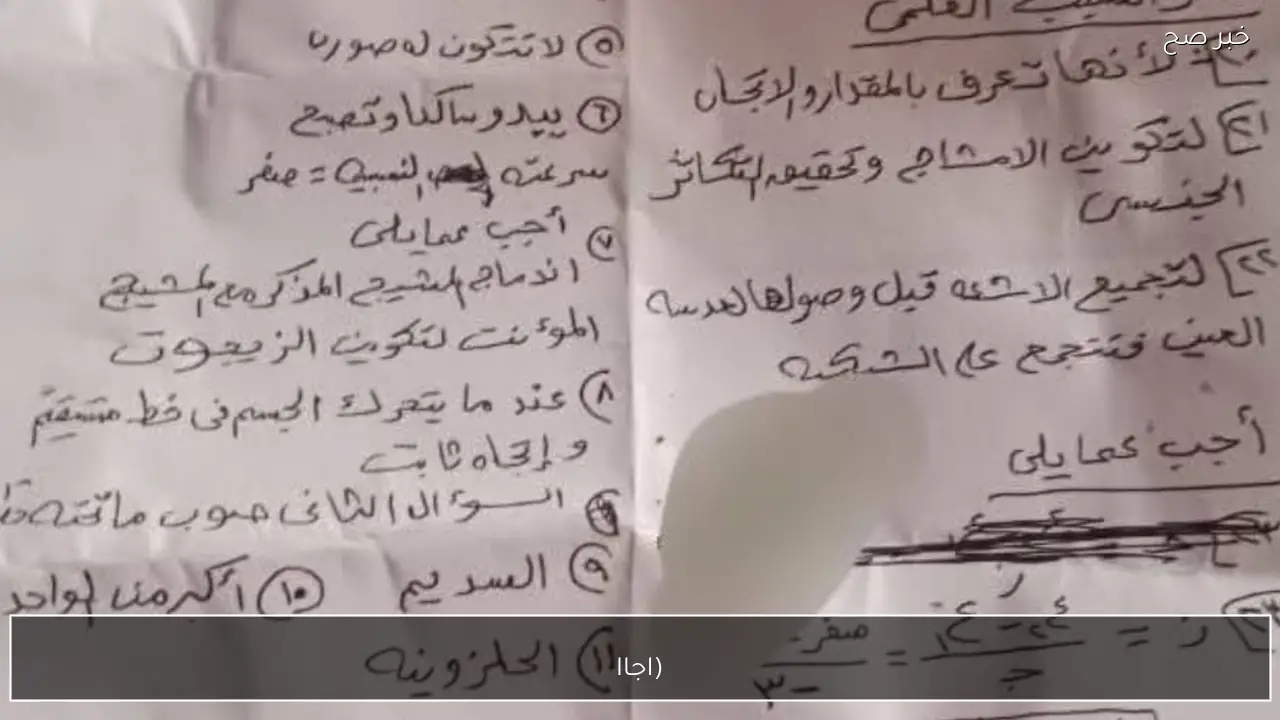 خبر صح
٢٠ لأنها تعرف بالمقدار والاتجاه
٢١ لتكوين الامشاج وتحقيق التكاثر
الجنسى
٢٢ لتجميع الاشعه قبل وصولها لعدسه
العين فتتجمع على الشبكيه
أجب عما يلى
٢٣ ز = ع٢ - ع١ / جـ = صفر - / - ٣
٥ لا تتكون له صوره
٦ يبدو ساكنا وتصبح
سرعته النسبية = صفر
٧ أجب عمايلى
اندماج المشيج المذكر مع المشيج
المؤنث لتكوين الزيجوت
٨ عند ما يتحرك الجسم فى خط مستقيم
و إتجاه ثابت
السؤال الثانى صوب ما تحته خط
٩ السديم
١٠ أكبر من الواحد
١١ الحلزونيه
(اجاا